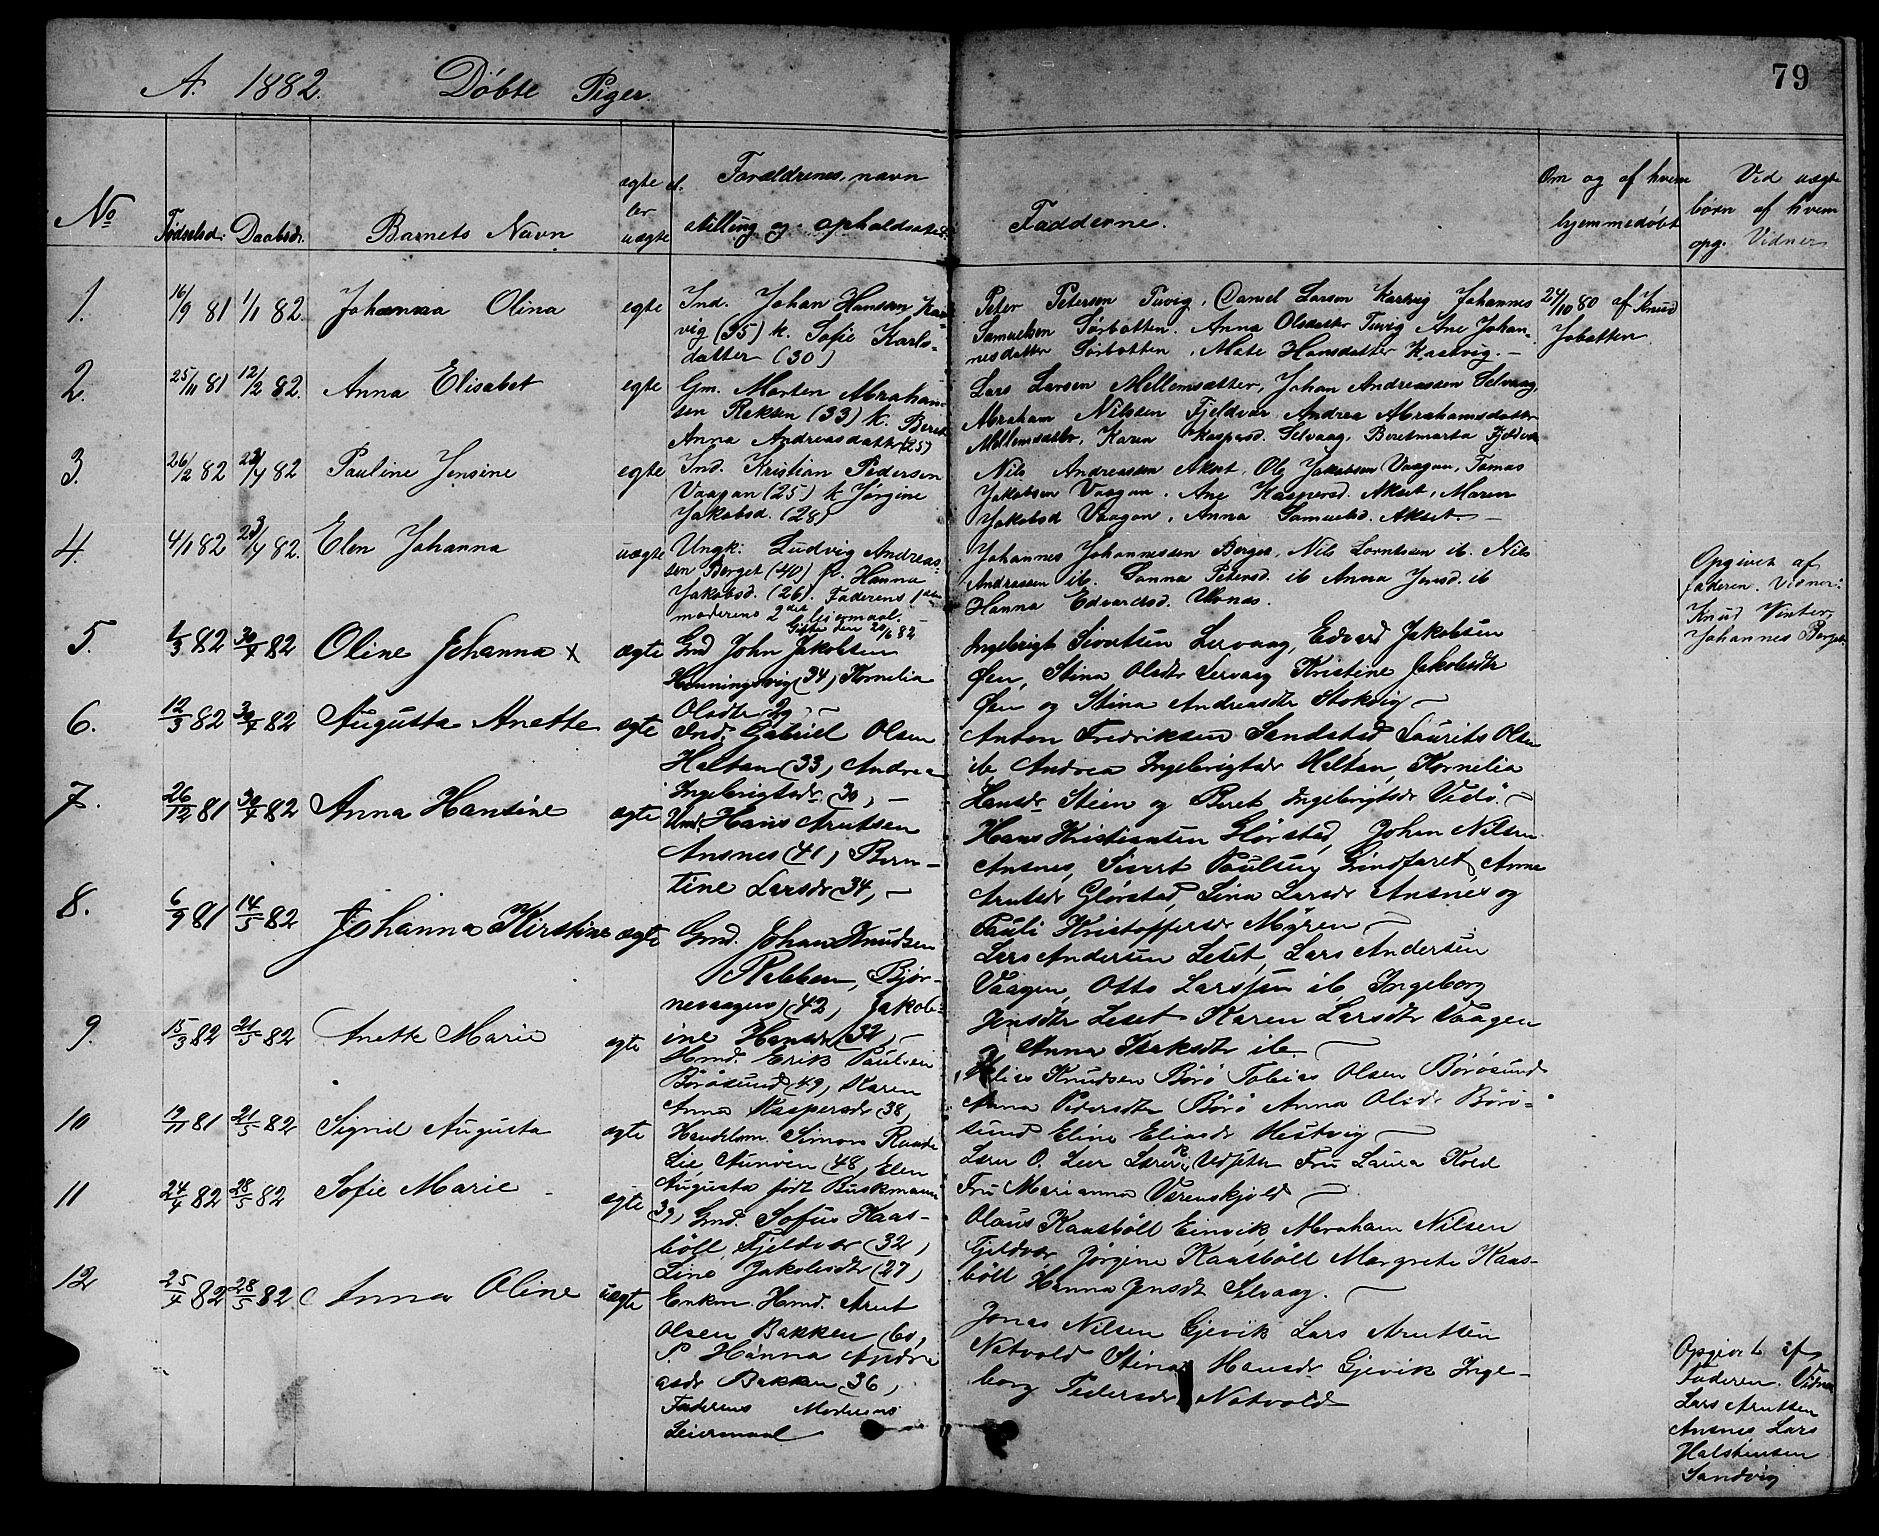 A. 1882. Døbte Piger. 79
No
Fødselsd: Daabsd.
Barnets Navn
ægte el.
ler
uægte
Forældrenes navn
stilling og opholdssted
Fadderne.
Om og af hvem
hjemmedøbt
Ved uægte
børn af hvem
opg. Vidner
1. 16/9 81 1/1 82. Johanna Olina egte
Ind. Johan Hansen Kar-
vig (35) k. Sofie Karls-
datter (30)
Peter Petersen Tuvig, Daniel Larsen Karvig Johannes
Samuelsen Sørbotten. Anna Olsdatter Tuvig Ane Johan-
nesdatter Sørbotten, Mate Hansdatter Kastvig. –
24/10 80 af Knud
Jobotten
2. 25/11 81 12/2 82. Anna Elisabet egte
Gm. Morten Abraham-
sen Reksen (33) k. Beret
Anna Andreasdatter (25)
Lars Larsen Mellemsætter, Johan Andreassen Selvaag,
Abraham Nilssen Fjeldvær, Andrea Abrahamsdatter
Mellemsætter, Karen Kaspersd. Selvaag, Beretmarta Fjeldvær
3. 26/2 82 23/4 82 Pauline Jensine egte
Ind. Kristian Pedersen
Vaagan (25) k Jørgine
Jakobsd. (28)
Nils Andreassen Akset, Ole Jakobsen Vaagan, Tomas
Jakobsen Vaagan, Ane Kaspersd. Akset, Maren
Jakobsd Vaagan, Anna Samuelsd. Akset. –
4. 4/1 82 23/4 82. Elen Johanna uægte
Ungk: Ludvig Andreas-
sen Berget (40) p. Hanna
Jakobsd. (26). Faderens 1ste
moderens 2det leiermaal. –
Gifte den 20/6 82 –
Johannes Johannessen Berget, Nils Lorntsen ib. Nils
Andreassen ib. Sanna Petersd. ib Anna Jensd. ib
Hanna Edvardsd. Ulvnas.
Opgivet af
faderen. Vidner:
Knud Vinter,
Johannes Berget
5. 1/3 82 30/4 82 Oline Johanna x ægte
Gmd John Jakobsen
Henningsvig (34) Kornelia
Olsdtr 29, –
Ingebrigt Sivertsen Lervaag, Edvard Jakobsen
Øen, Stina Olsdtr Lervaag Kristine Jakobsdtr
Øen og Stina Andreasdtr Stokvig –
6. 12/3 82 30/4 82 Augusta Anette ægte
Ind. Gabriel Olsen
Heltan (33, Andrea
Ingebrigtsdr (30, –
Anton Fredriksen Sandstad Laurits Olsen
ib, Andrea Ingebrigtsdr Heltan, Kornelia
Hansdr Stien og Beret Ingebrigtsdr Vedø. –
7. 26/12 81 30/4 82 Anna Hansine ægte
Hmd. Hans Arntsen
Ansnes (41, Bern-
tine Larsdr (34, –
Hans Kristiansen Glørstad, Johan Nilsen
Ansnes, Sivert Paulsen Grindfaret, Anne
Arntsdr Glørstad, Lina Larsdr Ansnes og
Pauli Kristoffersdr Myren –
8. 6/9 81 14/5 82 Johanna Kirstine ægte
Gmd. Johan Knudsen
Rabben, Bjør-
nevaagen (42, Jakob-
ine Hansdr (32, –
Lars Andersen Leset, Lars Andersen
Vaagen, Otto Larssen ib, Ingeborg
Jensdtr Leset Karen Larsdtr Vaagen
og Anna Isaksdtr ib –
9. 15/3 82 21/5 82 Anette Marie egte
Hmd. Erik Paulsen
Børøsund (49, Karen
Anna Kaspersdr (38,
Elias Knudsen Børø Tobias Olsen Børøsund
Anna Pedersdtr Børø Anna Olsdr Børø-
sund Eline Eliasdr Hestvig –
10 12/11 81 21/5 82 Sigrid Augusta egte
Handelsm. Simon Raade
Lie, Aunøen (48, Elen
Augusta født Buskmann
39,
Lærer O. Leer Lærer R. Vedseter Fru Laura Koed
Fru Marianna Værenskjold –
11 24/4 82 28/5 82 Sofie Marie egte
Gmd. Sofus Kaas-
böll, Fjeldvær (32,
Line Jakobsdtr (27,
Olaus Kaasböll Einvik Abraham Nilsen
Fjeldvær, Jørgine Kaasböll Margrete Kaas-
böll, Hanna Jensdt Selvaag. –
12 25/4 82 28/5 82 Anna Oline uægte
Enkm. Hmd. Arnt
Olsen Bakken (60,
P. Hanna Andre
asdr Bakken (36,
Faderens Moderens
Leiermaal
Jonas Nilsen Gjevik Lars Arntsen
Notvold Stina Hansdr Gjevik Inge-
borg Pedersdr Notvold
Opgivet af
Faderen. Vidner
Lars Arntsen
Ansnes Lars
Halstensen
Sandvig